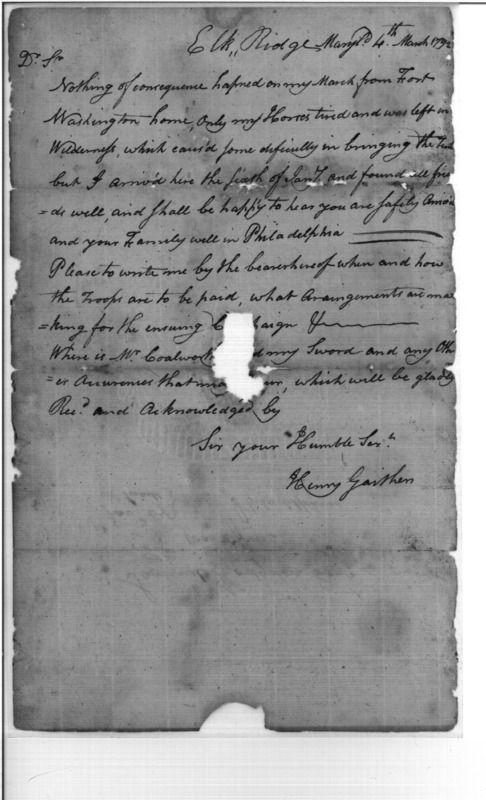 Elk,, Ridge Maryld 4th March 1792
Dr Sir
Nothing of consequence hapned on my March from Fort
Washington home, Only my Horses tired and was left in
Wilderness, which caus'd some deficulty in bringing the
but I arriv'd here the sixth of Jany and found all frie
=ds well, and shall be happy to hear you are safely Arriv'd
and your Family well in Philadelphia
Please to write me by the bearer hereof when and how
the Troops are to be paid, what Arangements are ma
=king for the ensuing
Where is Mr. my Sword and any Oth
=er Accurences that which will be gladly
Recd and Acknowledged by
Sir your Humble Servt
Henry Gaither